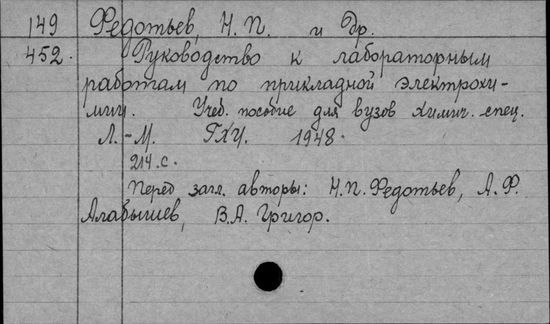 149 Федотьев, Н. П. и др.
452. Руководство к лабораторным
работам по прикладной электрохи-
мии. Учеб. пособие для вузов химич. спец.
Л.-М. ГХИ. 1948.
214 с.
Перед загл. авторы: Н.П. Федотьев, А.Ф.
Алабышев, В.А. Григор.